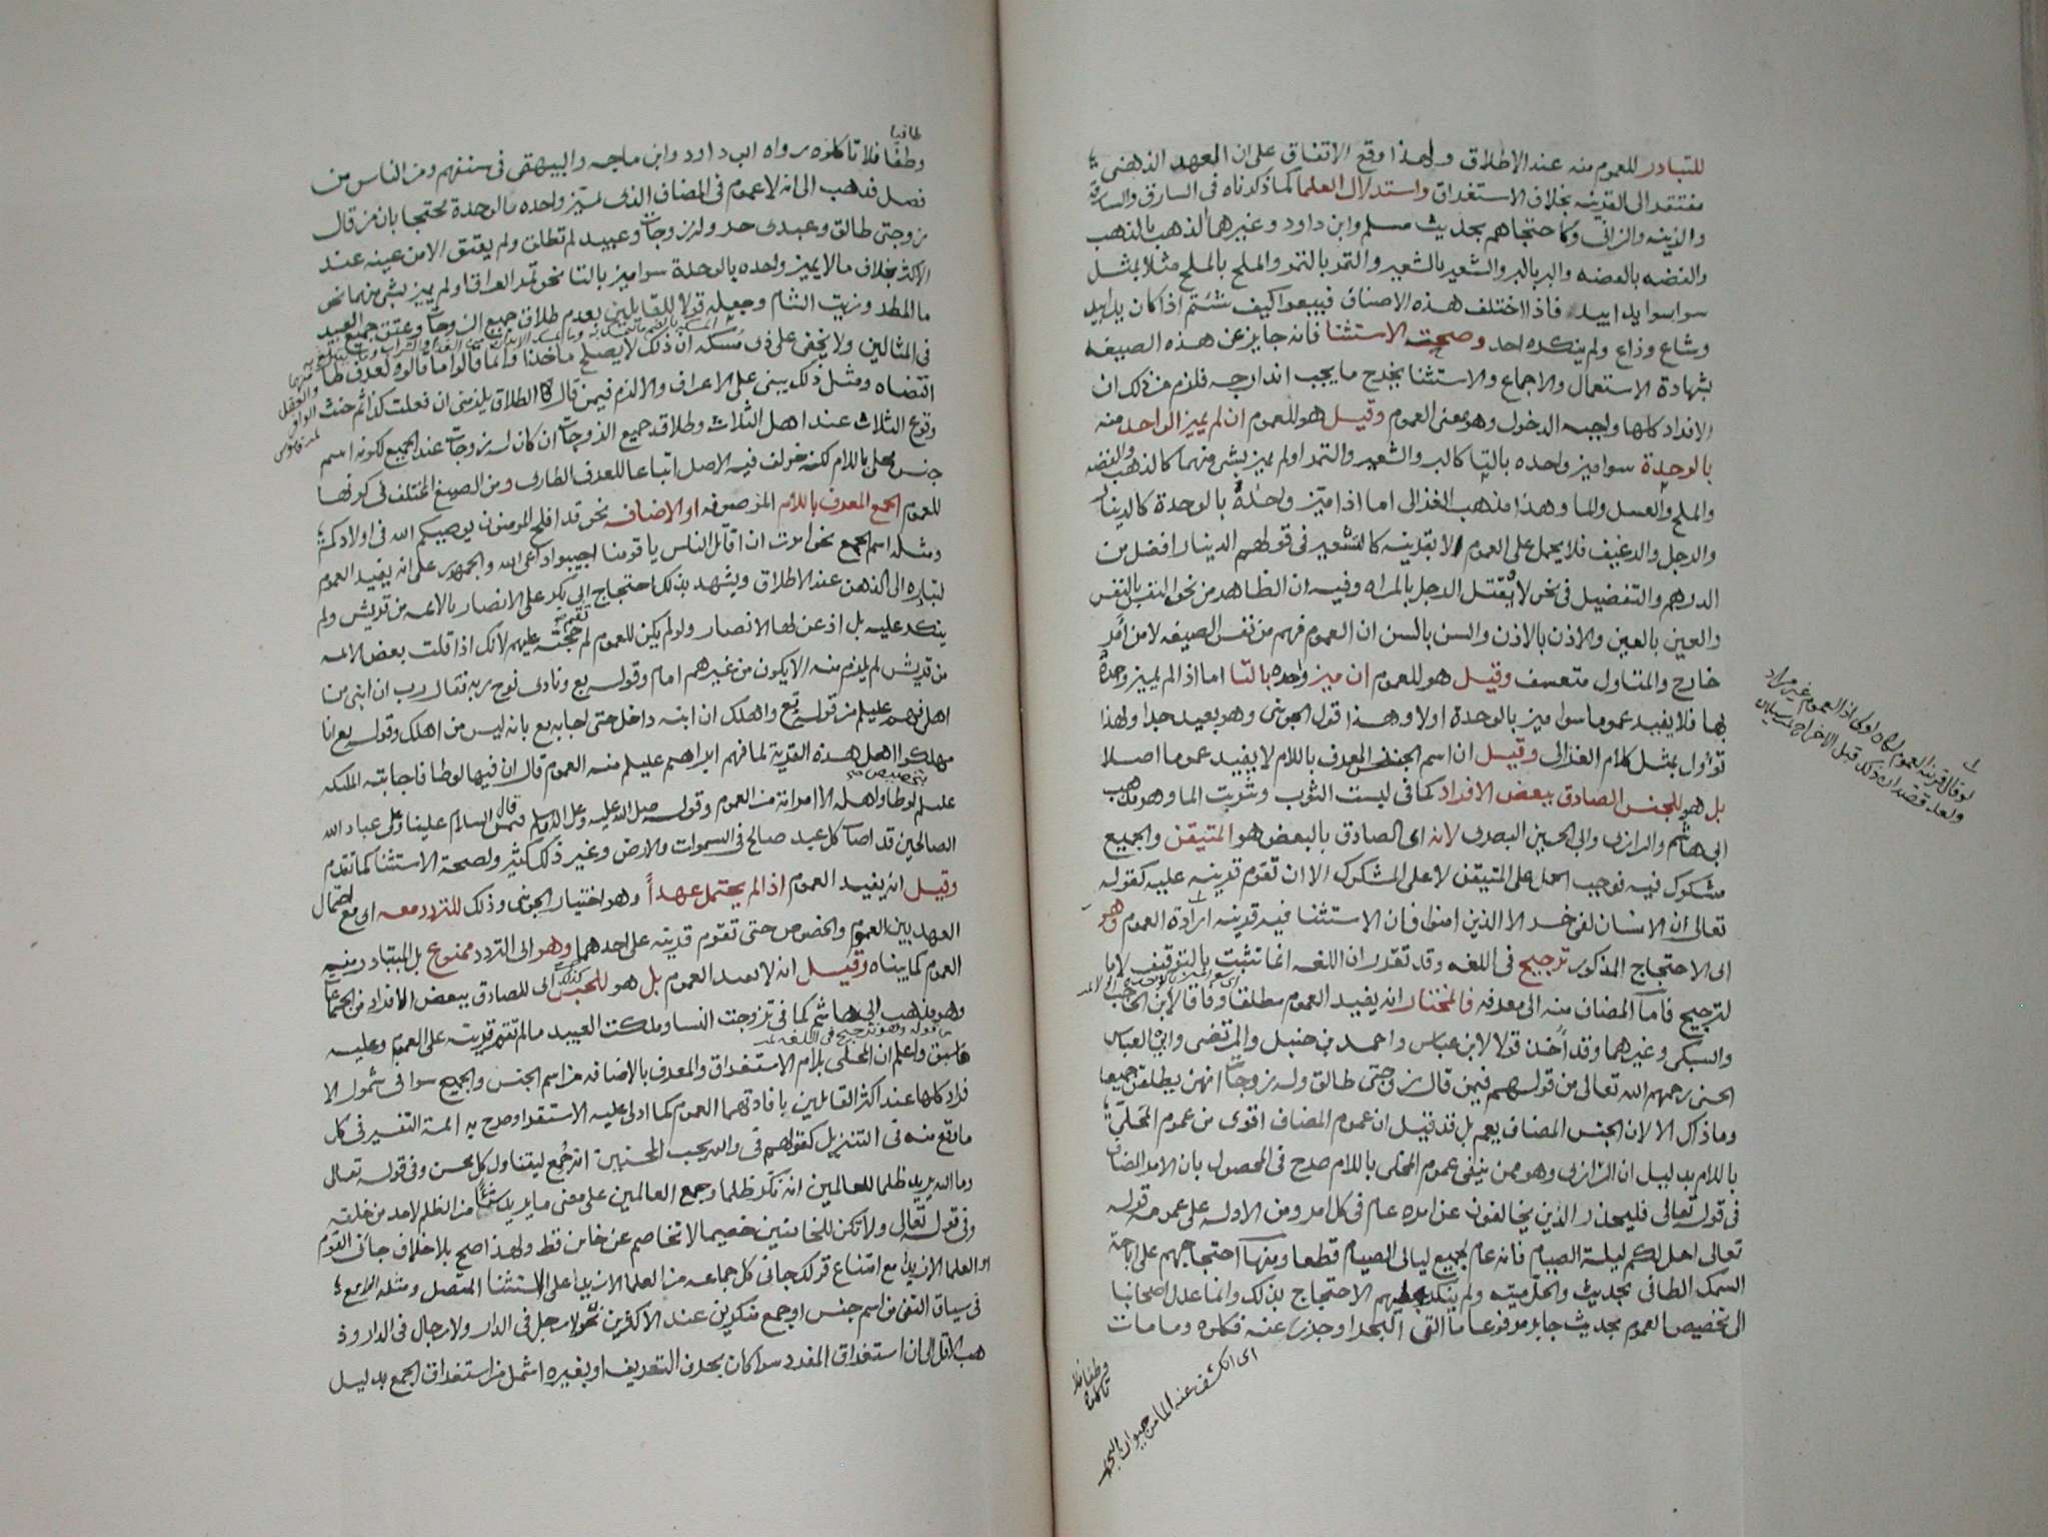 للتبادر للعموم منه عند الاطلاق ولهذا وقع الاتفاق على ان العهد الذهني
مفتقر الى القرينه بخلاف الاستغراق واستدلال العلما كما ذكرناه في السارق والسارقة
والزينه والزاني وكاحتجاهم بحديث مسلم وابن داود وغيرها الذهب بالذهب
والفضه بالفضه والبر بالبر والشعير بالشعير والتمر بالتمر والملح بالملح مثلا بمثل
سوا سوا يدا بيد فاذا اختلف هذه الاصناف فبيعوا كيف شئتم اذا كان يدا بيد
وشاع وذاع ولم ينكره احد وصحة الاستثنا فانه جايز عن هذه الصيغه
بشهادة الاستعمال والاجماع والاستثنا يخرج ما يجب اندارجه فلزم من ذلك ان
الافراد كلها واجبه الدخول وهو معنى العموم وقيل هو للعموم ان لم يميز الواحد منه
بالوحدة سوا ميز واحده بالتا كالبر والشعير والتمر اولم يميز بشي منهما كالذهب والفضه
والملح والعسل والما وهذا مذهب الغزالي اما اذا متيز واحده بالوحدة كالدينار
والرجل والرغيف فلا يحمل على العموم الا بقرينه كالتسعير في قولهم الدينار افضل من
الدرهم والتفضيل في نحو لا يقتل الرجل بالمراه وفيه ان الظاهر من نحو النفس بالنفس
والعين بالعين والاذن بالاذن والسن بالسن ان العموم فهم من نفس الصيغه لا من امر
خارج والمتناول متعسف وقيل هو للعموم ان ميز واحده بالتا اما اذا لم يميز وحده
بها فلا يفيد عموما سوا ميز بالوحدة اولا وهذا قول الجوينى وهو بعيد جدا ولهذا
تؤول بمثل كلام الغزالى وقيل ان اسم الجنس المعرف باللام لا يفيد عموما اصلا
بل هو للجنس الصادق ببعض الافراد كما في لبست الثوب وشربت الما وهو مذهب
ابى هاشم والرازى وابى الحسين البصرى لانه اى الصادق بالبعض هو المتيقن والجميع
مشكوك فيه فوجب الحمل على المتيقن لا على المشكوك الا ان تقوم قرينه عليه كقوله
تعالى ان الانسان لفى خسر الا الذين امنوا فان الاستثنا فيه قرينه ارادة العموم وهو
اى الاحتجاج المذكور ترجيح في اللغه وقد تقرر ان اللغه انما تثبت بالتوقيف لا با
لترجيح فاما المضاف منه الى معرفه فالمختار انه يفيد العموم مطلقا وفاقا لابن الحاجب
والسبكى وغيرهما وقد اخذ قولا لابن عباس واحمد بن حنبل والمرتضى وابى العباس
الحسنى رحمهم الله تعالى من قولهم فيمن قال زوجتى طالق وله زوجات انهن يطلقن جميعا
وما ذاك الا لان الجنس المضاف يعم بل قد قيل ان عموم المضاف اقوى من عموم المحلى
باللام بدليل ان الرازى وهو ممن ينفى عموم المحلى باللام صرح في المحصول بان الامر المضاف
في قوله تعالى فليحذر الذين يخالفون عن امره عام في كل امر ومن الاوله على عمومه قوله
تعالى احل لكم ليلة الصيام فانه عام لجميع ليالى الصيام قطعا ومنها احتجاجهم على اباحة
السمك الطافى بحديث والحل ميته ولم ينكر عليهم الاحتجاج بذلك وانما عدل اصحابنا
الى تخصيص العموم بحديث جابر مرفوعا ما القى البحر او جزر عنه فكلوه وما مات
وطفا فلا
تاكلوه
اى انكشف عنه الما من حيوان البحر
لو قال قرينه العموم لكان اولى اذ العموم غير مراد
ولعله قصد ان ذلك قبل الاخراج
طافيا
وطفا فلا تاكلوه رواه ابو داود وابن ماجه والبيهقى في سننهم ومن الناس من
فصل فذهب الى انه لا عموم في المضاف الذى تميز واحده بالوحدة محتجا بان من قال
زوجتى طالق وعبدى حر وله زوجات وعبيد لم تطلق ولم يعتق الا من عينه عند
الاكثر بخلاف ما لا يميز واحده بالوحدة سوا ميز بالتا نحو تمر العراق او لم يميز بشي منهما نحو
ما المطر وزيت الشام وجعله قولا للقايلين بعدم طلاق جميع الزوجات وعتق جميع العبيد
في المثالين ولا يخفى على ذى مسكه ان ذلك لا يصلح ماخذا وانما قالوا ما قالوه لعرف طا
اقتضاه ومثل ذلك يبنى على الاعراف والا لزم فيمن قال الطلاق يلزمنى ان فعلت كذا ثم حنث
وقوع الثلاث عند اهل الثلاث وطلاق جميع الزوجات ان كان له زوجات عند الجميع لكونه اسم
جنس محلى باللام لكنه خولف فيه الاصل اتباعا للعرف الطارى ومن الصيغ المختلف في كونها
للعموم الجمع المعرف باللام الموصوفه او الاضافه نحو قد افلح المومنون يوصيكم الله في اولادكم
ومثله اسم الجمع نحو امرت ان اقاتل الناس يا قومنا اجيبوا داعى الله والجمهور على انه يفيد العموم
لتبادره الى الذهن عند الاطلاق ويشهد بذلك احتجاج ابى بكر على الانصار بالائمه من قريش ولم
ينكر عليه بل اذعن لها الانصار ولو لم يكن للعموم لم تقم حجته عليهم لانك اذا قلت بعض الائمه
من قريش لم يلزم منه الا يكون من غيرهم امام وقوله تع ونادى نوح ربه فقال رب ان ابنى من
اهلى فهم عليلم من قوله تع واهلك ان ابنه داخل حتى اجابه تع بانه ليس من اهلك وقوله تع انا
مهلكوا اهل هذه القرية لما فهم ابراهيم عليلم منه العموم قال ان فيها لوطا فاجابته الملئكه
بتخصيص
عليلم لوطا واهله الا امراته من العموم وقوله صلى الله عليه وعلى اله وسلم فيمن قال السلام علينا وعلى عباد الله
الصالحين قد اصاب كل عبد صالح في السموات والارض وغير ذلك كثير ولصحة الاستثنا كما تقدم
وقيل انه يفيد العموم اذا لم يحتمل عهدا وهو اختيار الجوينى وذلك للتردد معه اى مع احتمال
العهد بين العموم والخصوص حتى تقوم قرينه على احدهما وهو اى التردد ممنوع بل المتبادر منه
العموم كما بيناه وقيل انه لا يفيد العموم بل هو للجنس كذلك اى للصادق ببعض الافراد
وهو مذهب ابى هاشم كما في تزوجت النسا وملكت العبيد ما لم تقم قرينه على العموم وعليه
من قوله وهو ترجيح في اللغه
ما سبق واعلم ان المحلى بلام الاستغراق والمعرف بالاضافه من اسم الجنس والجميع سوا فى شمول الا
فراد كلها عند اكثر القايلين بافادتهما العموم كما دل عليه الاستقرا وصرح به ائمة التفسير في كل
ما وقع منه في التنزيل كقولهم في والله يحب المحسنين انه جمع ليتناول كل محسن وفى قوله تعالى
وما الله يريد ظلما للعالمين انه نكر ظلما وجمع العالمين على معنى ما يريد شيئا من الظلم لاحد من خلقه
وفى قوله تعالى ولا تكن للخائنين خصيما لا تخاصم عن خاين قط ولهذا صح بلا خلاف جانى القوم
او العلما الا زيدا مع امتناع قولك جانى كل جماعه من العلما الا زيدا على الاستثنا المتصل ومثله الواقع
في سياق النفى من اسم جنس او جمع منكرين عند الاكثرين نحو لا رجل في الدار ولا رجال في الدار وذ
هب الاقل الى ان استغراق المفرد سوا كان بحرف التعريف او بغيره اشمل من استغراق الجمع بدليل